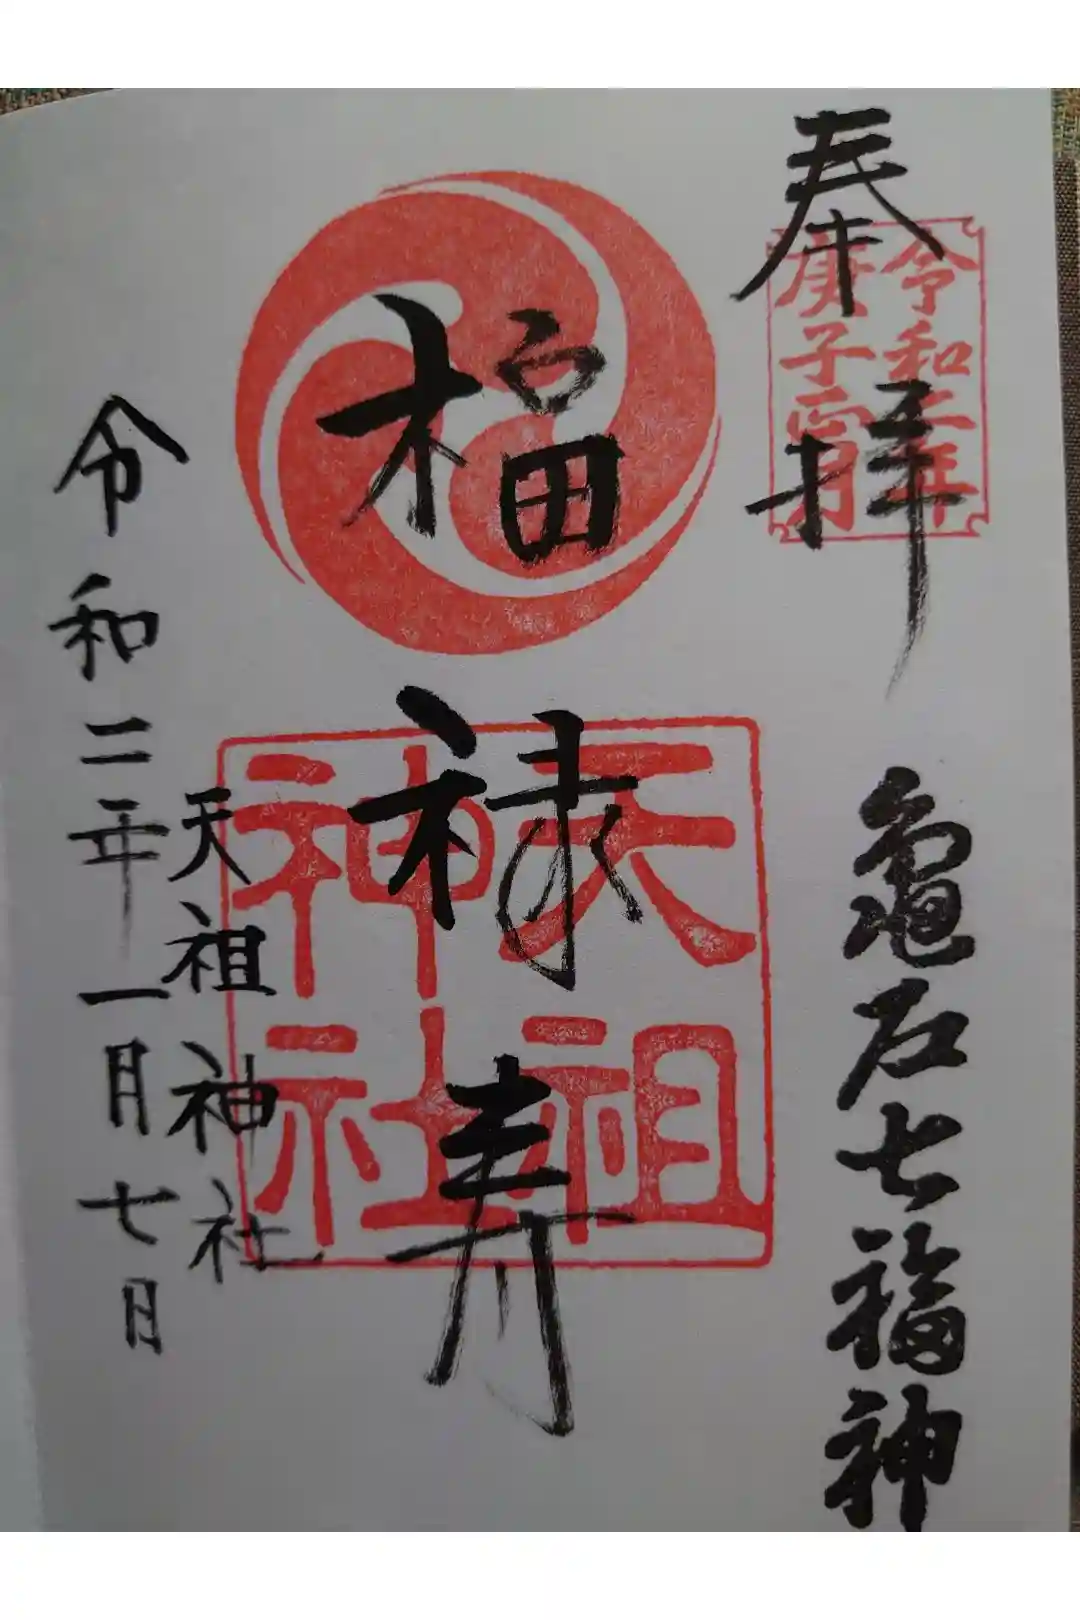 奉拝
令和二年
庚子正月
亀戸七福神
福禄寿
天祖
神社
天祖神社
令和二年一月七日